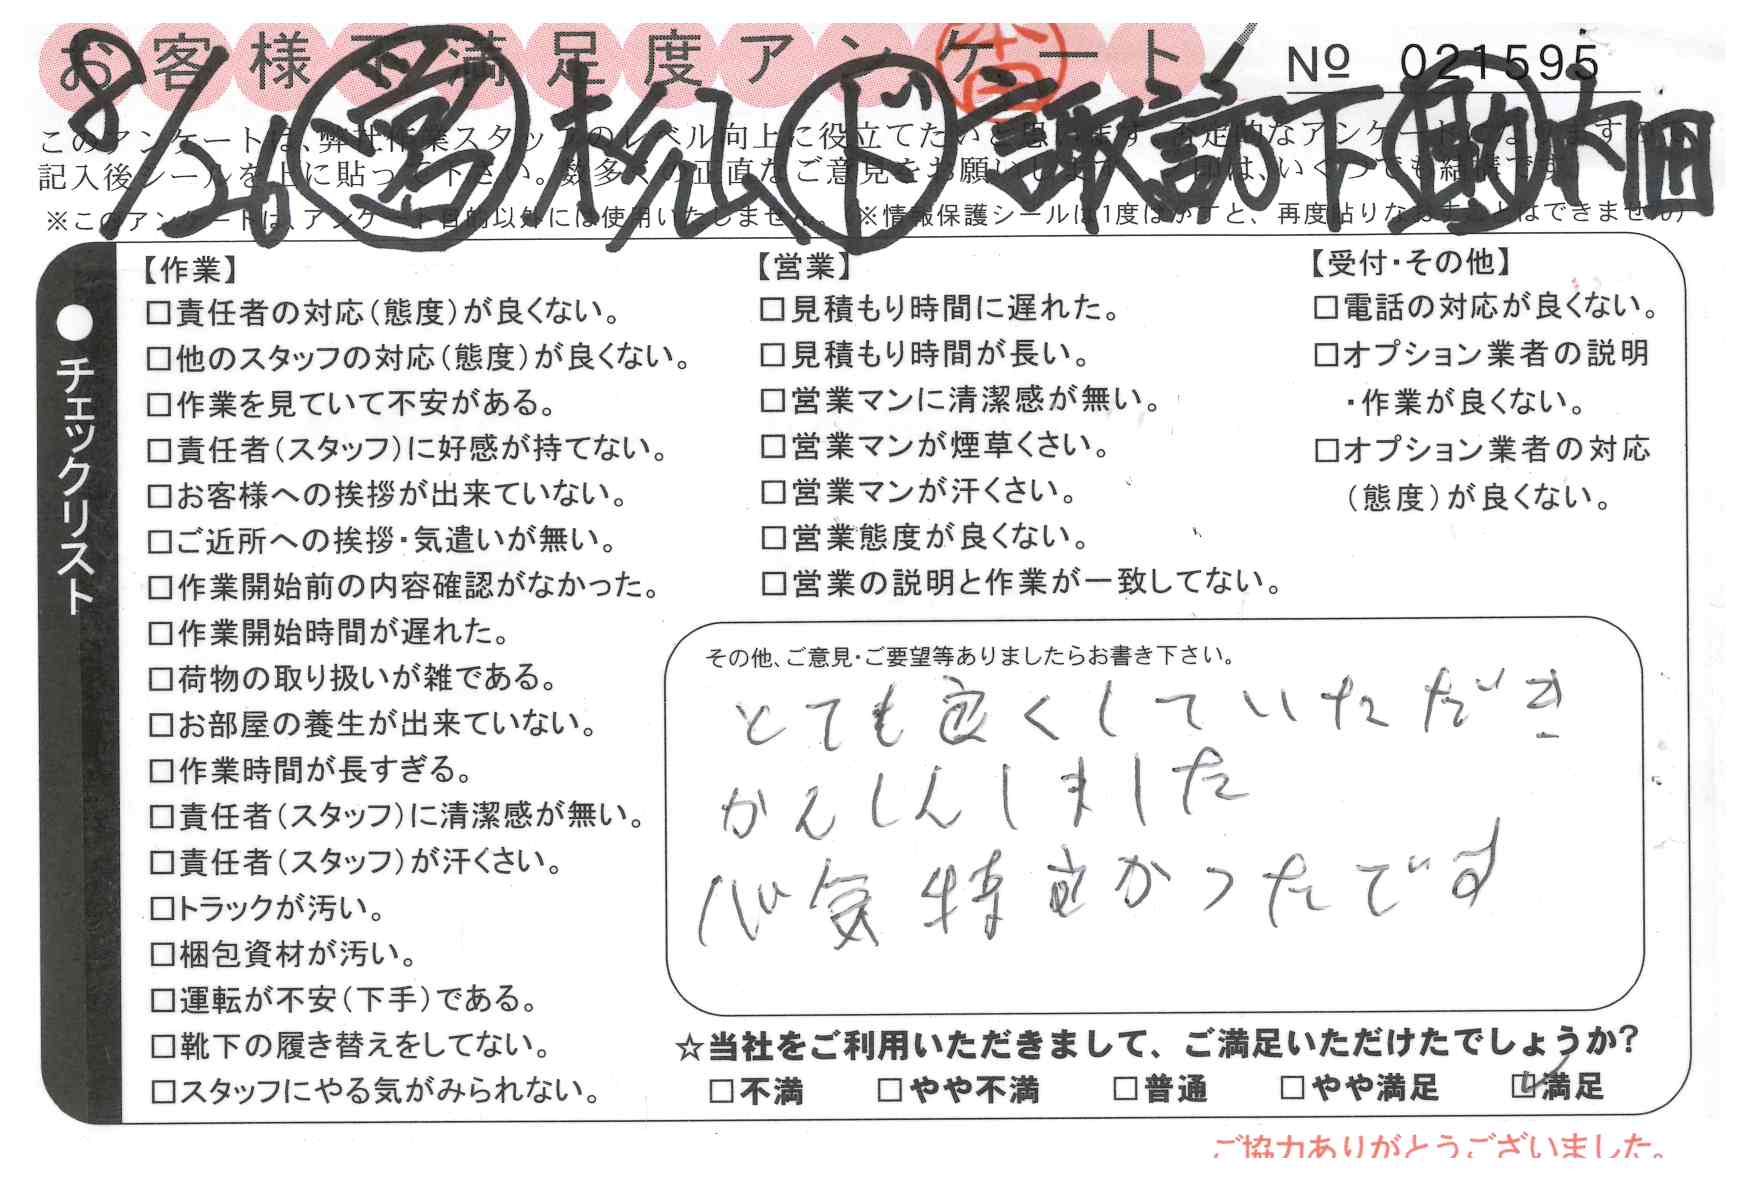 お客様不満足度アンケート
№ 021595
8/26 営 松山 ド 諏訪下 助 内田
このアンケートは、弊社作業スタッフのレベル向上に役立てたいと思います
記入後シールを上に貼って下さい。数多くの正直なご意見をお願いします いくつでも結構です。
※このアンケートは、アンケート目的以外には使用いたしません。(※情報保護シールは1度はがすと、再度貼りなおすことはできません)
●チェックリスト
【作業】
□責任者の対応(態度)が良くない。
□他のスタッフの対応(態度)が良くない。
□作業を見ていて不安がある。
□責任者(スタッフ)に好感が持てない。
□お客様への挨拶が出来ていない。
□ご近所への挨拶・気遣いが無い。
□作業開始前の内容確認がなかった。
□作業開始時間が遅れた。
□荷物の取り扱いが雑である。
□お部屋の養生が出来ていない。
□作業時間が長すぎる。
□責任者(スタッフ)に清潔感が無い。
□責任者(スタッフ)が汗くさい。
□トラックが汚い。
□梱包資材が汚い。
□運転が不安(下手)である。
□靴下の履き替えをしてない。
□スタッフにやる気がみられない。
【営業】
□見積もり時間に遅れた。
□見積もり時間が長い。
□営業マンに清潔感が無い。
□営業マンが煙草くさい。
□営業マンが汗くさい。
□営業態度が良くない。
□営業の説明と作業が一致してない。
【受付・その他】
□電話の対応が良くない。
□オプション業者の説明
・作業が良くない。
□オプション業者の対応
(態度)が良くない。
その他、ご意見・ご要望等ありましたらお書き下さい。
とても良くしていただき
かんしんしました
心気持良かったです
☆当社をご利用いただきまして、ご満足いただけたでしょうか?
□不満 □やや不満 □普通 □やや満足 ☑満足
ご協力ありがとうございました。